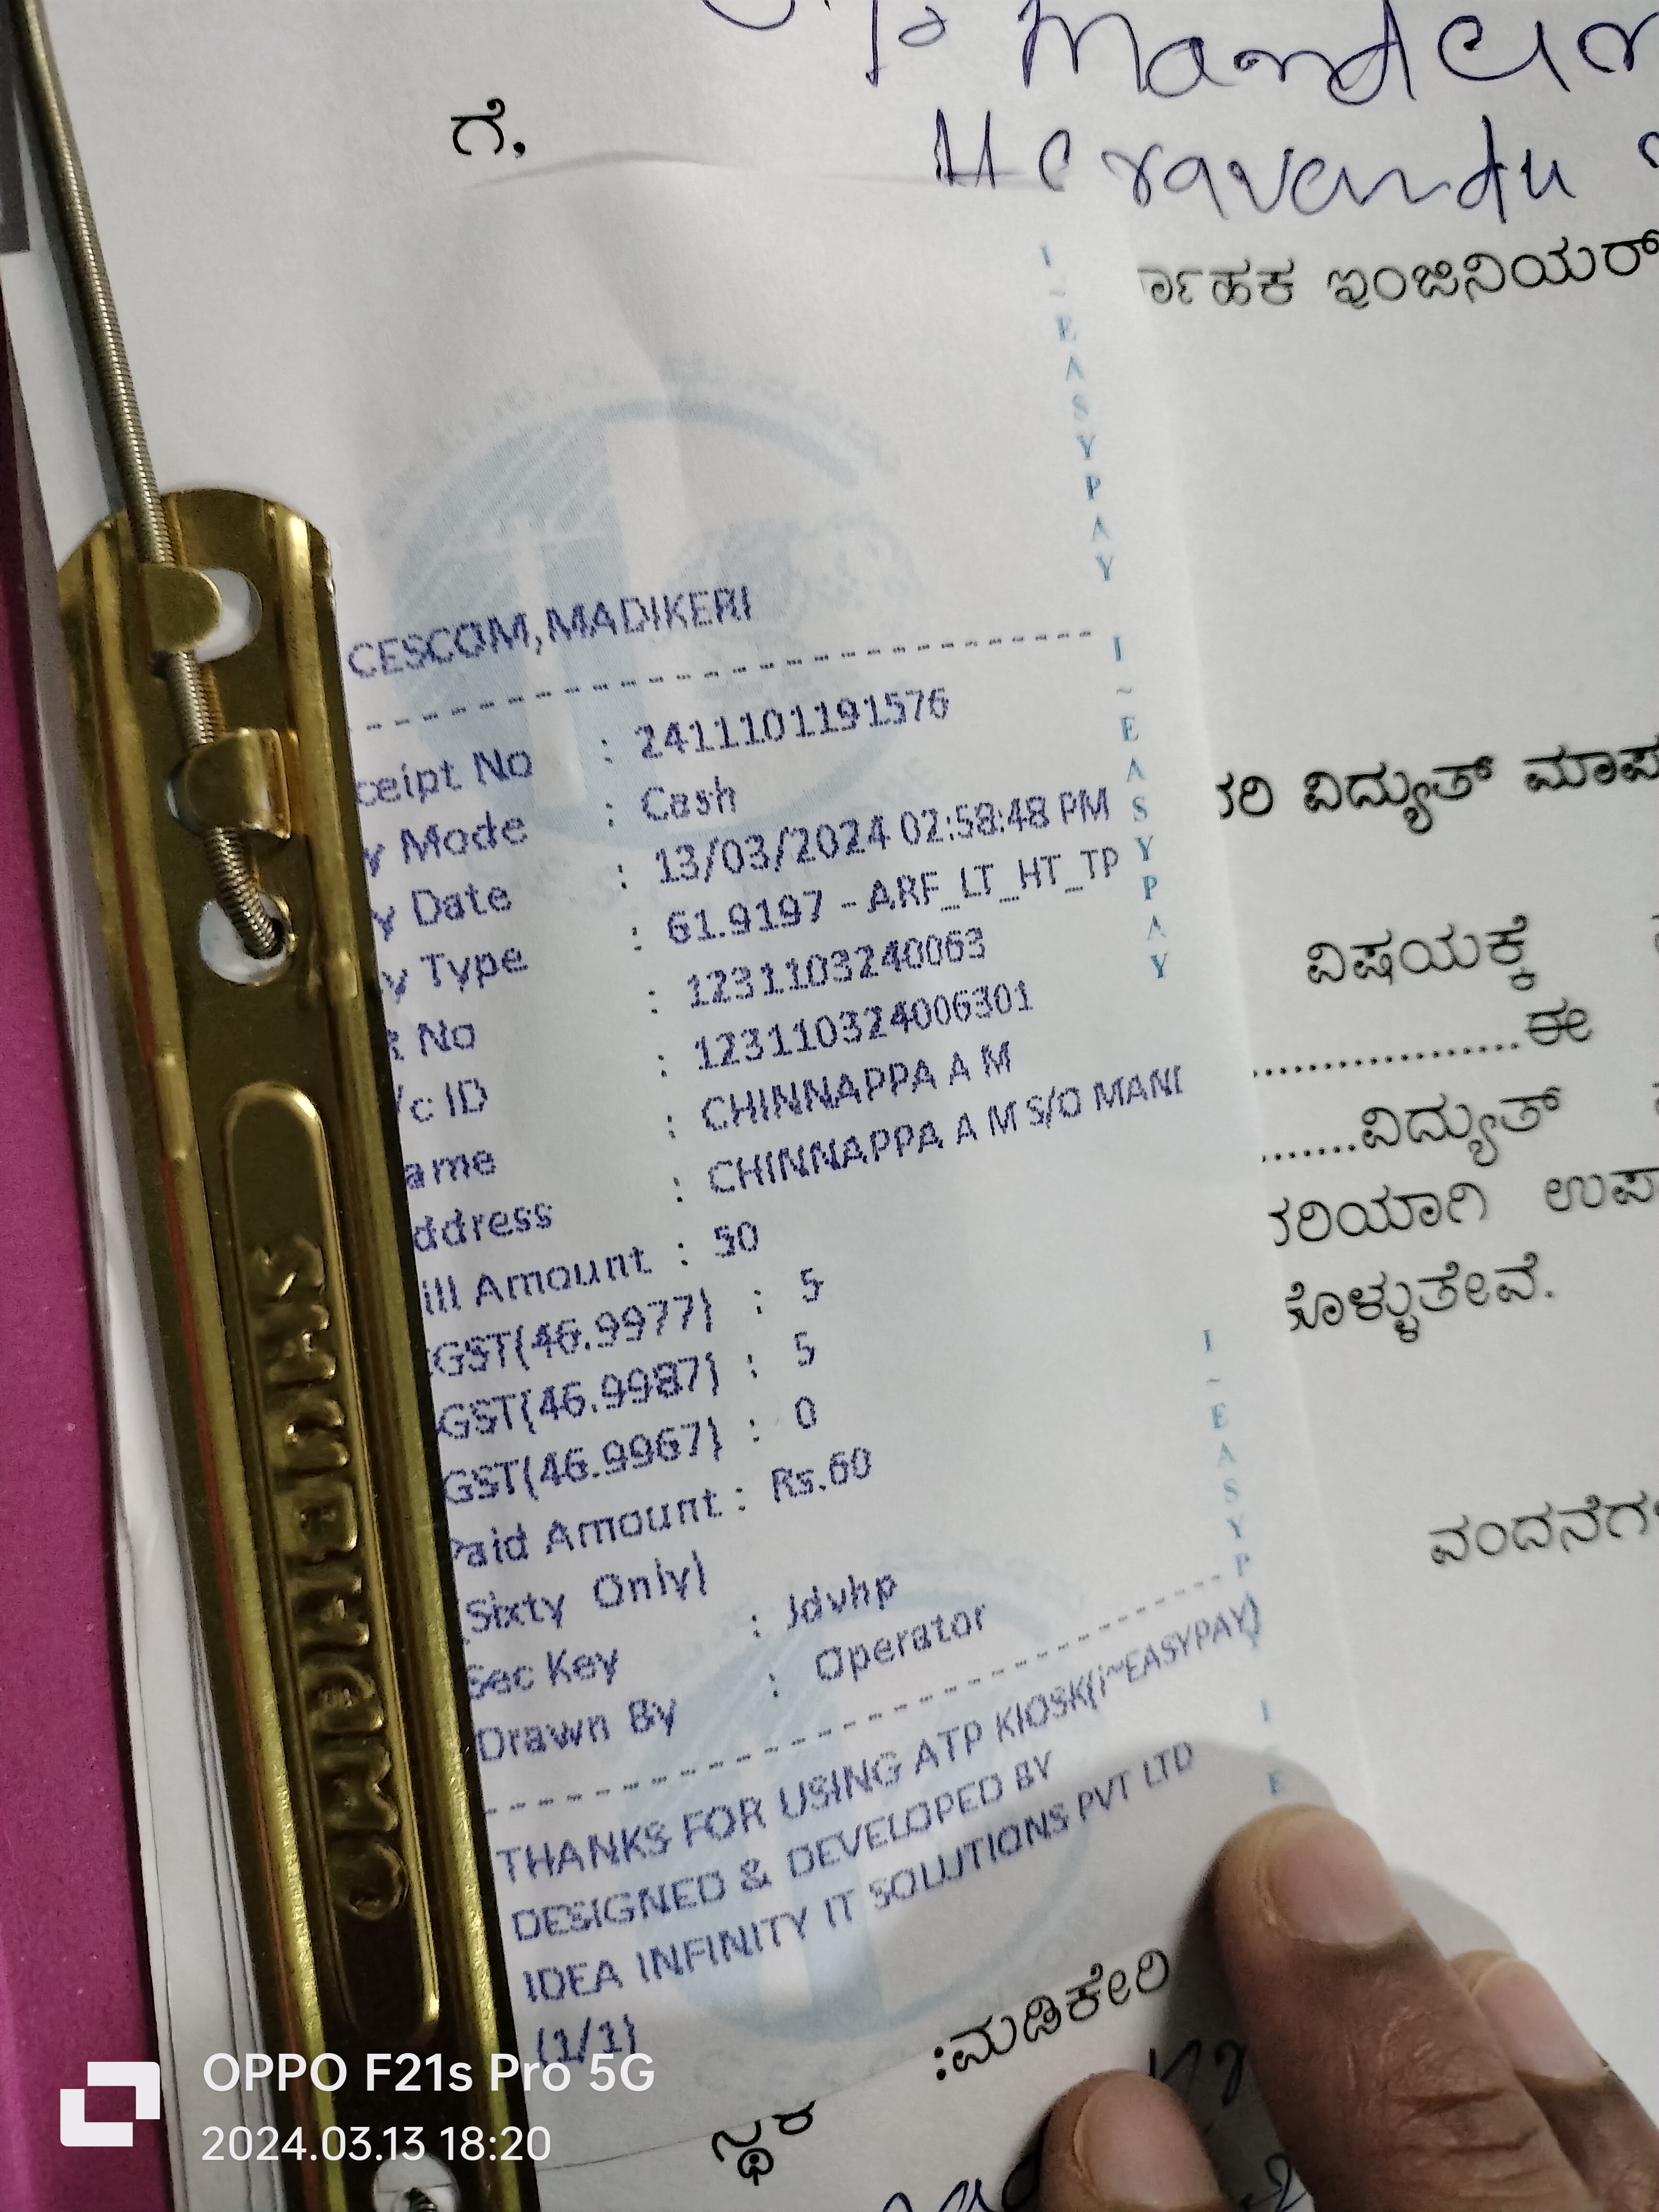 S/o Mand
Heravandu
ಗೆ,
ರ್ವಾಹಕ ಇಂಜಿನಿಯರ್
I~EASYPAY
CESCOM,MADIKERI
I~EASYPAY
ceipt No : 2411101191576
y Mode : Cash
y Date : 13/03/2024 02:58:48 PM
y Type : 61.9197 - ARF_LT_HT_TP
t No : 1231103240063
/c ID : 123110324006301
ame : CHINNAPPA A M
ddress : CHINNAPPA A M S/O MANI
ill Amount : 50
GST(46.9977) : 5
GST(46.9987) : 5
GST(46.9967) : 0
Paid Amount : Rs.60
(Sixty Only)
Sec Key : Jdvhp
Drawn By : Operator
I~EASYPAY
THANKS FOR USING ATP KIOSK(i~EASYPAY)
DESIGNED & DEVELOPED BY
IDEA INFINITY IT SOLUTIONS PVT LTD
(1/1)
I~E
ವಿದ್ಯುತ್ ಮಾಪ
ವಿಷಯಕ್ಕೆ
....................ಈ
.......ವಿದ್ಯುತ್
ರಿಯಾಗಿ ಉಪ
ಕೊಳ್ಳುತೇವೆ.
ವಂದನೆಗ
ಸ್ಥಳ :ಮಡಿಕೇರಿ
SHUBHAM
OPPO F21s Pro 5G
2024.03.13 18:20